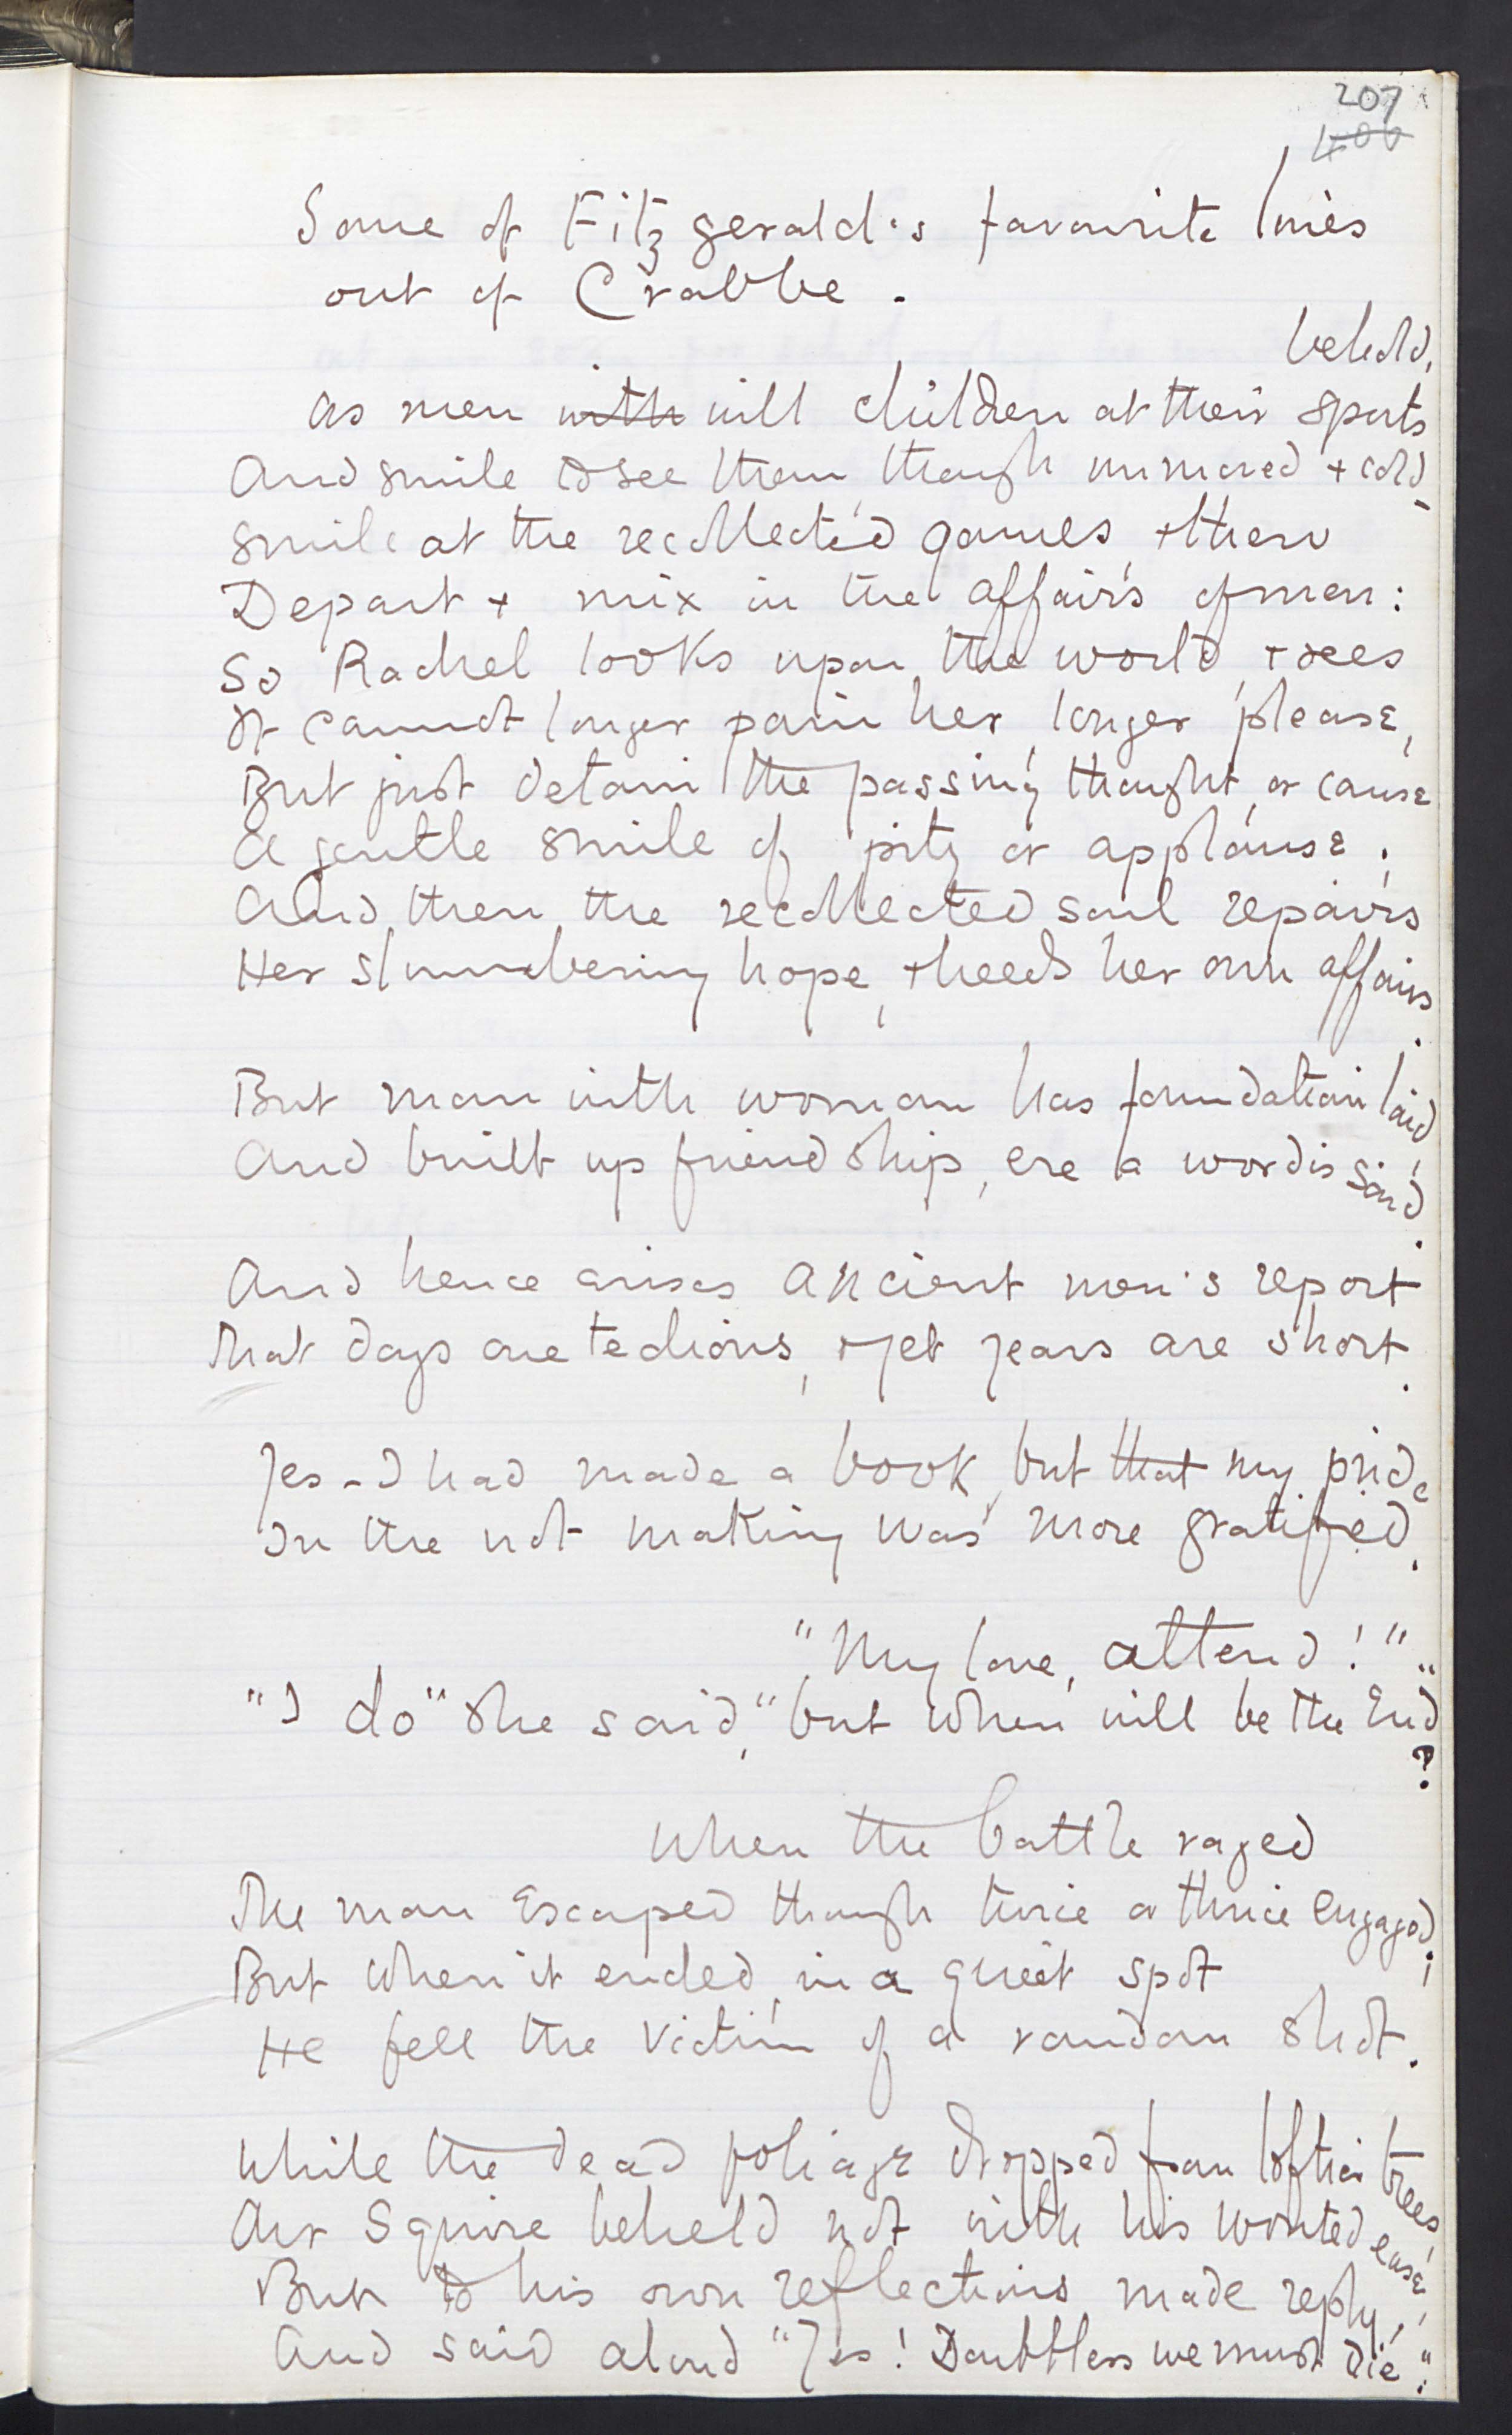 207
400
Some of Fitzgerald's favourite lines
out of Crabbe.
behold,
As men with will children at their sports
And smile to see them, though unmoved + cold,
Smile at the recollected games + then
Depart + mix in the affairs of men:
So Rachel looks upon the world, + sees
It cannot longer pain her, longer please,
But just detain the passing thought, or cause
A gentle smile of pity or applause;
And then the recollected soul repairs
Her slumbering hope, + heeds her own affairs.
But man with woman has foundation laid,
And built up friendship, ere a word is said.
And hence arises ancient men's report
That days are tedious, + yet years are short.
Yes - I had made a book, but that my pride
In the not making was more gratified.
"My love, attend!"
"I do" she said, "but when will be the End"?
When the battle raged
The man Escaped though twice or thrice engaged;
But when it ended, in a quiet spot
He fell the victim of a random shot.
While the dead foliage dropped from loftier trees,
Our Squire beheld not with his wonted ease,
But to his own reflections made reply,
And said aloud "Yes! Doubtless we must die".